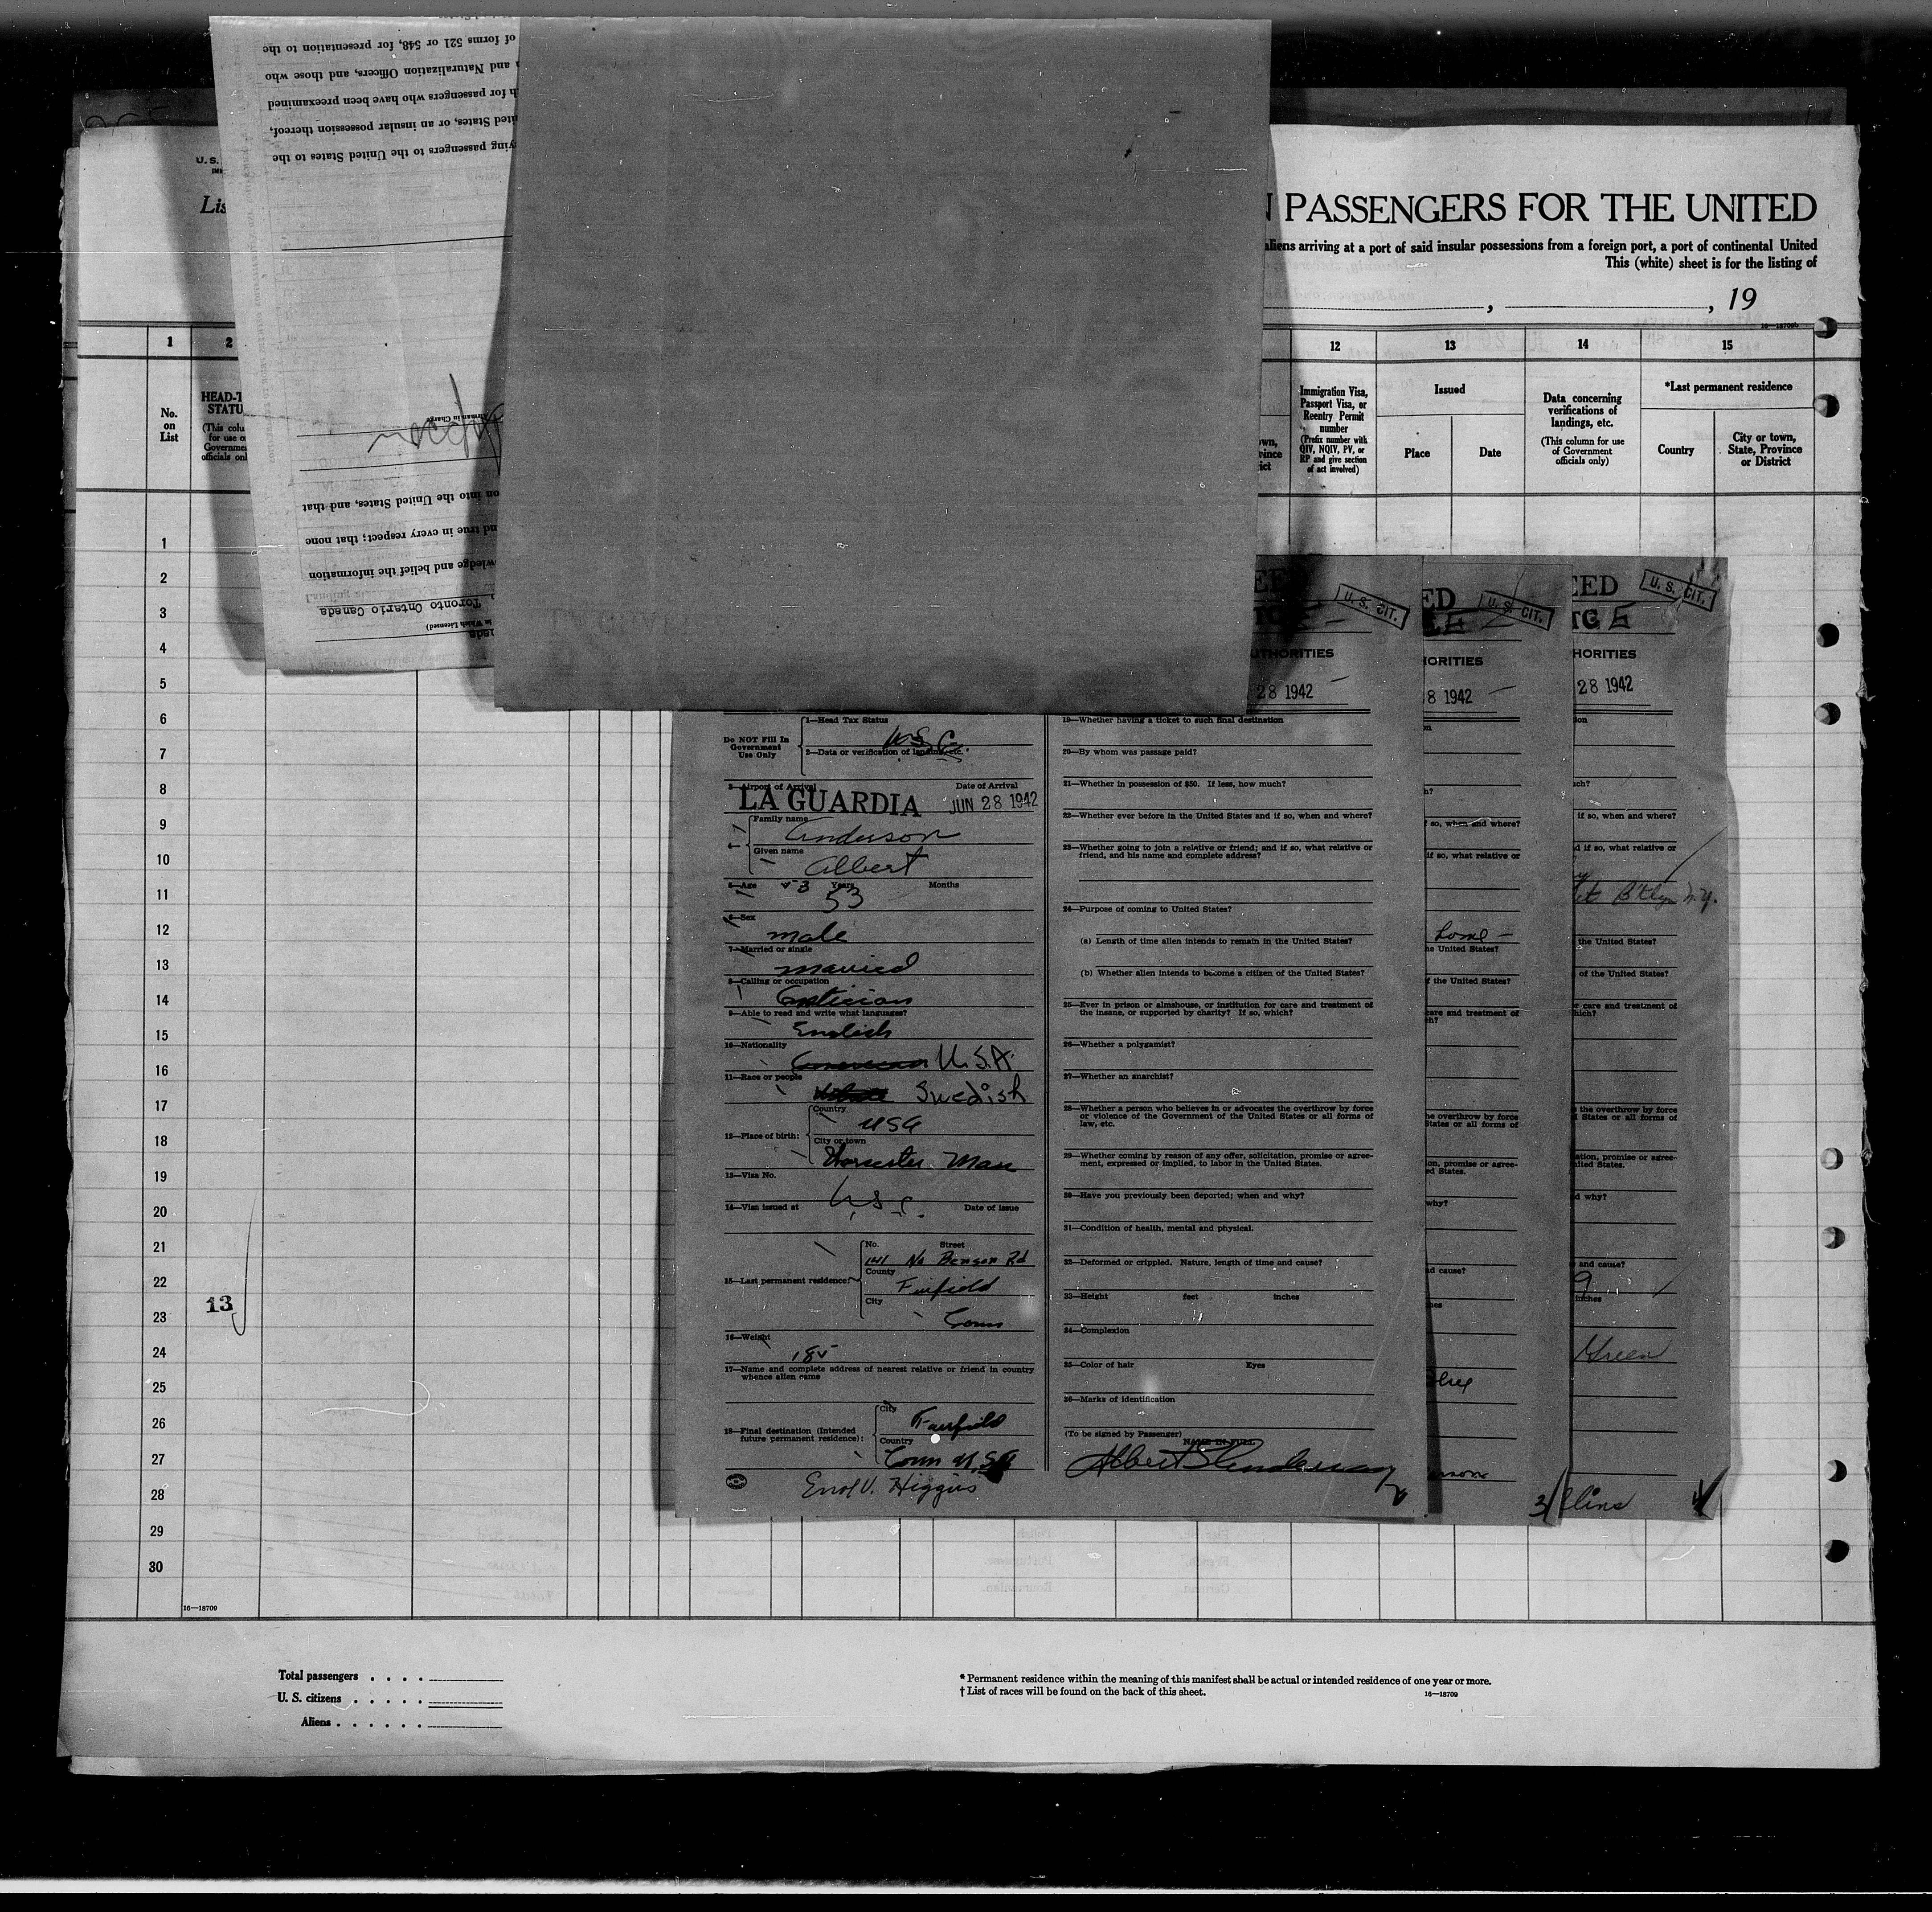 of forms 521 or 548, for presentation to the
and Naturalization Officers, and those who
h for passengers who have been preexamined
ited States, or an insular possession thereof,
ying passengers to the United States to the
U. S.
Lis
N PASSENGERS FOR THE UNITED
aliens arriving at a port of said insular possessions from a foreign port, a port of continental United
This (white) sheet is for the listing of
, , 19
16—18709b
1 2 12 13 14 15
No. on List
HEAD-T
STATU
(This colu
for use o
Governme
officials onl
Immigration Visa, Passport Visa, or Reentry Permit number
(Prefix number with QIV, NQIV, PV, or RP and give section of act involved)
Issued
Place Date
Data concerning verifications of landings, etc.
(This column for use of Government officials only)
*Last permanent residence
Country
City or town, State, Province or District
Airman in Charge
on into the United States, and that
nd true in every respect; that none
wledge and belief the information
Toronto Ontario Canada
in Which Licensed)
1
2
3
4
5
6
7
8
9
10
11
12
13
14
15
16
17
18
19
20
21
22
23
24
25
26
27
28
29
30
13
LA GUARD
U. S. CIT.
UTHORITIES
28 1942
Do NOT Fill In Government Use Only
1—Head Tax Status
U.S.C.
2—Data or verification of landing, etc.
3—Airport of Arrival Date of Arrival
LA GUARDIA JUN 28 1942
Family name
Anderson
Given name
Albert
5—Age Years Months
53
6—Sex
male
7—Married or single
married
8—Calling or occupation
Optician
9—Able to read and write what languages?
English
10—Nationality
American U.S.A.
11—Race or people
Swedish
12—Place of birth:
Country
USA
City or town
Worcester Mass
13—Visa No.
U.S.C.
14—Visa issued at Date of issue
15—Last permanent residence:
No. Street
141 No Benson Rd
County
Fairfield
City
Conn
16—Weight
185
17—Name and complete address of nearest relative or friend in country whence alien came
18—Final destination (Intended future permanent residence):
City
Fairfield
Country
Conn U.S.A
Errol V. Higgins
19—Whether having a ticket to such final destination
20—By whom was passage paid?
21—Whether in possession of $50. If less, how much?
22—Whether ever before in the United States and if so, when and where?
23—Whether going to join a relative or friend; and if so, what relative or
friend, and his name and complete address?
24—Purpose of coming to United States?
(a) Length of time alien intends to remain in the United States?
(b) Whether alien intends to become a citizen of the United States?
25—Ever in prison or almshouse, or institution for care and treatment of
the insane, or supported by charity? If so, which?
26—Whether a polygamist?
27—Whether an anarchist?
28—Whether a person who believes in or advocates the overthrow by force
or violence of the Government of the United States or all forms of
law, etc.
29—Whether coming by reason of any offer, solicitation, promise or agree-
ment, expressed or implied, to labor in the United States.
30—Have you previously been deported; when and why?
31—Condition of health, mental and physical.
32—Deformed or crippled. Nature, length of time and cause?
33—Height feet inches
34—Complexion
35—Color of hair Eyes
36—Marks of identification
(To be signed by Passenger)
NAME IN FULL
Albert Anderson
2
ED
U. S. CIT.
HORITIES
8 1942
h?
f so, when and where?
if so, what relative or
home —
he United States?
f the United States?
care and treatment of
ch?
he overthrow by force
States or all forms of
on, promise or agree-
ed States.
why?
nd cause?
hes
3
EED
U. S. CIT.
TG E
HORITIES
28 1942
tion
uch?
if so, when and where?
d if so, what relative or
B'klyn N.Y.
the United States?
of the United States?
r care and treatment of
hich?
s the overthrow by force
d States or all forms of
ation, promise or agree-
nited States.
d why?
and cause?
9
inches
Green
llins
4
16—18709
Total passengers . . . .
U. S. citizens . . . . .
Aliens . . . . . .
* Permanent residence within the meaning of this manifest shall be actual or intended residence of one year or more.
† List of races will be found on the back of this sheet.
16—18709